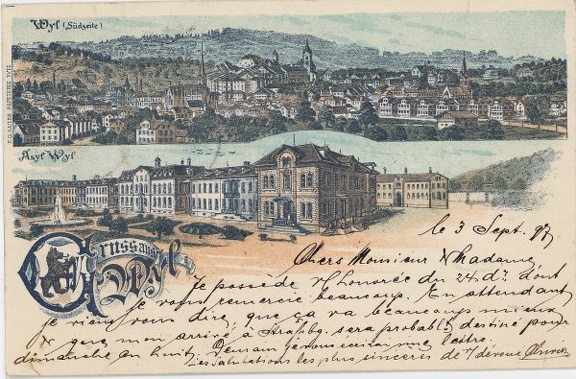 Wyl (Südseite)
Asyl Wyl
Gruss aus
Wyl
le 3 Sept. 97
Chers Monsieur & Madame,
Je possède l'honorée du 24. ct. dont
je vous remercie beaucoup. En attendant
je viens vous dire, que ça va beaucoup mieux
& que mon arrivé à Strassbg. sera probabl. destiné pour
dimanche en huit. Demain je vous écrirai une lettre.
Les salutations les plus sincères de